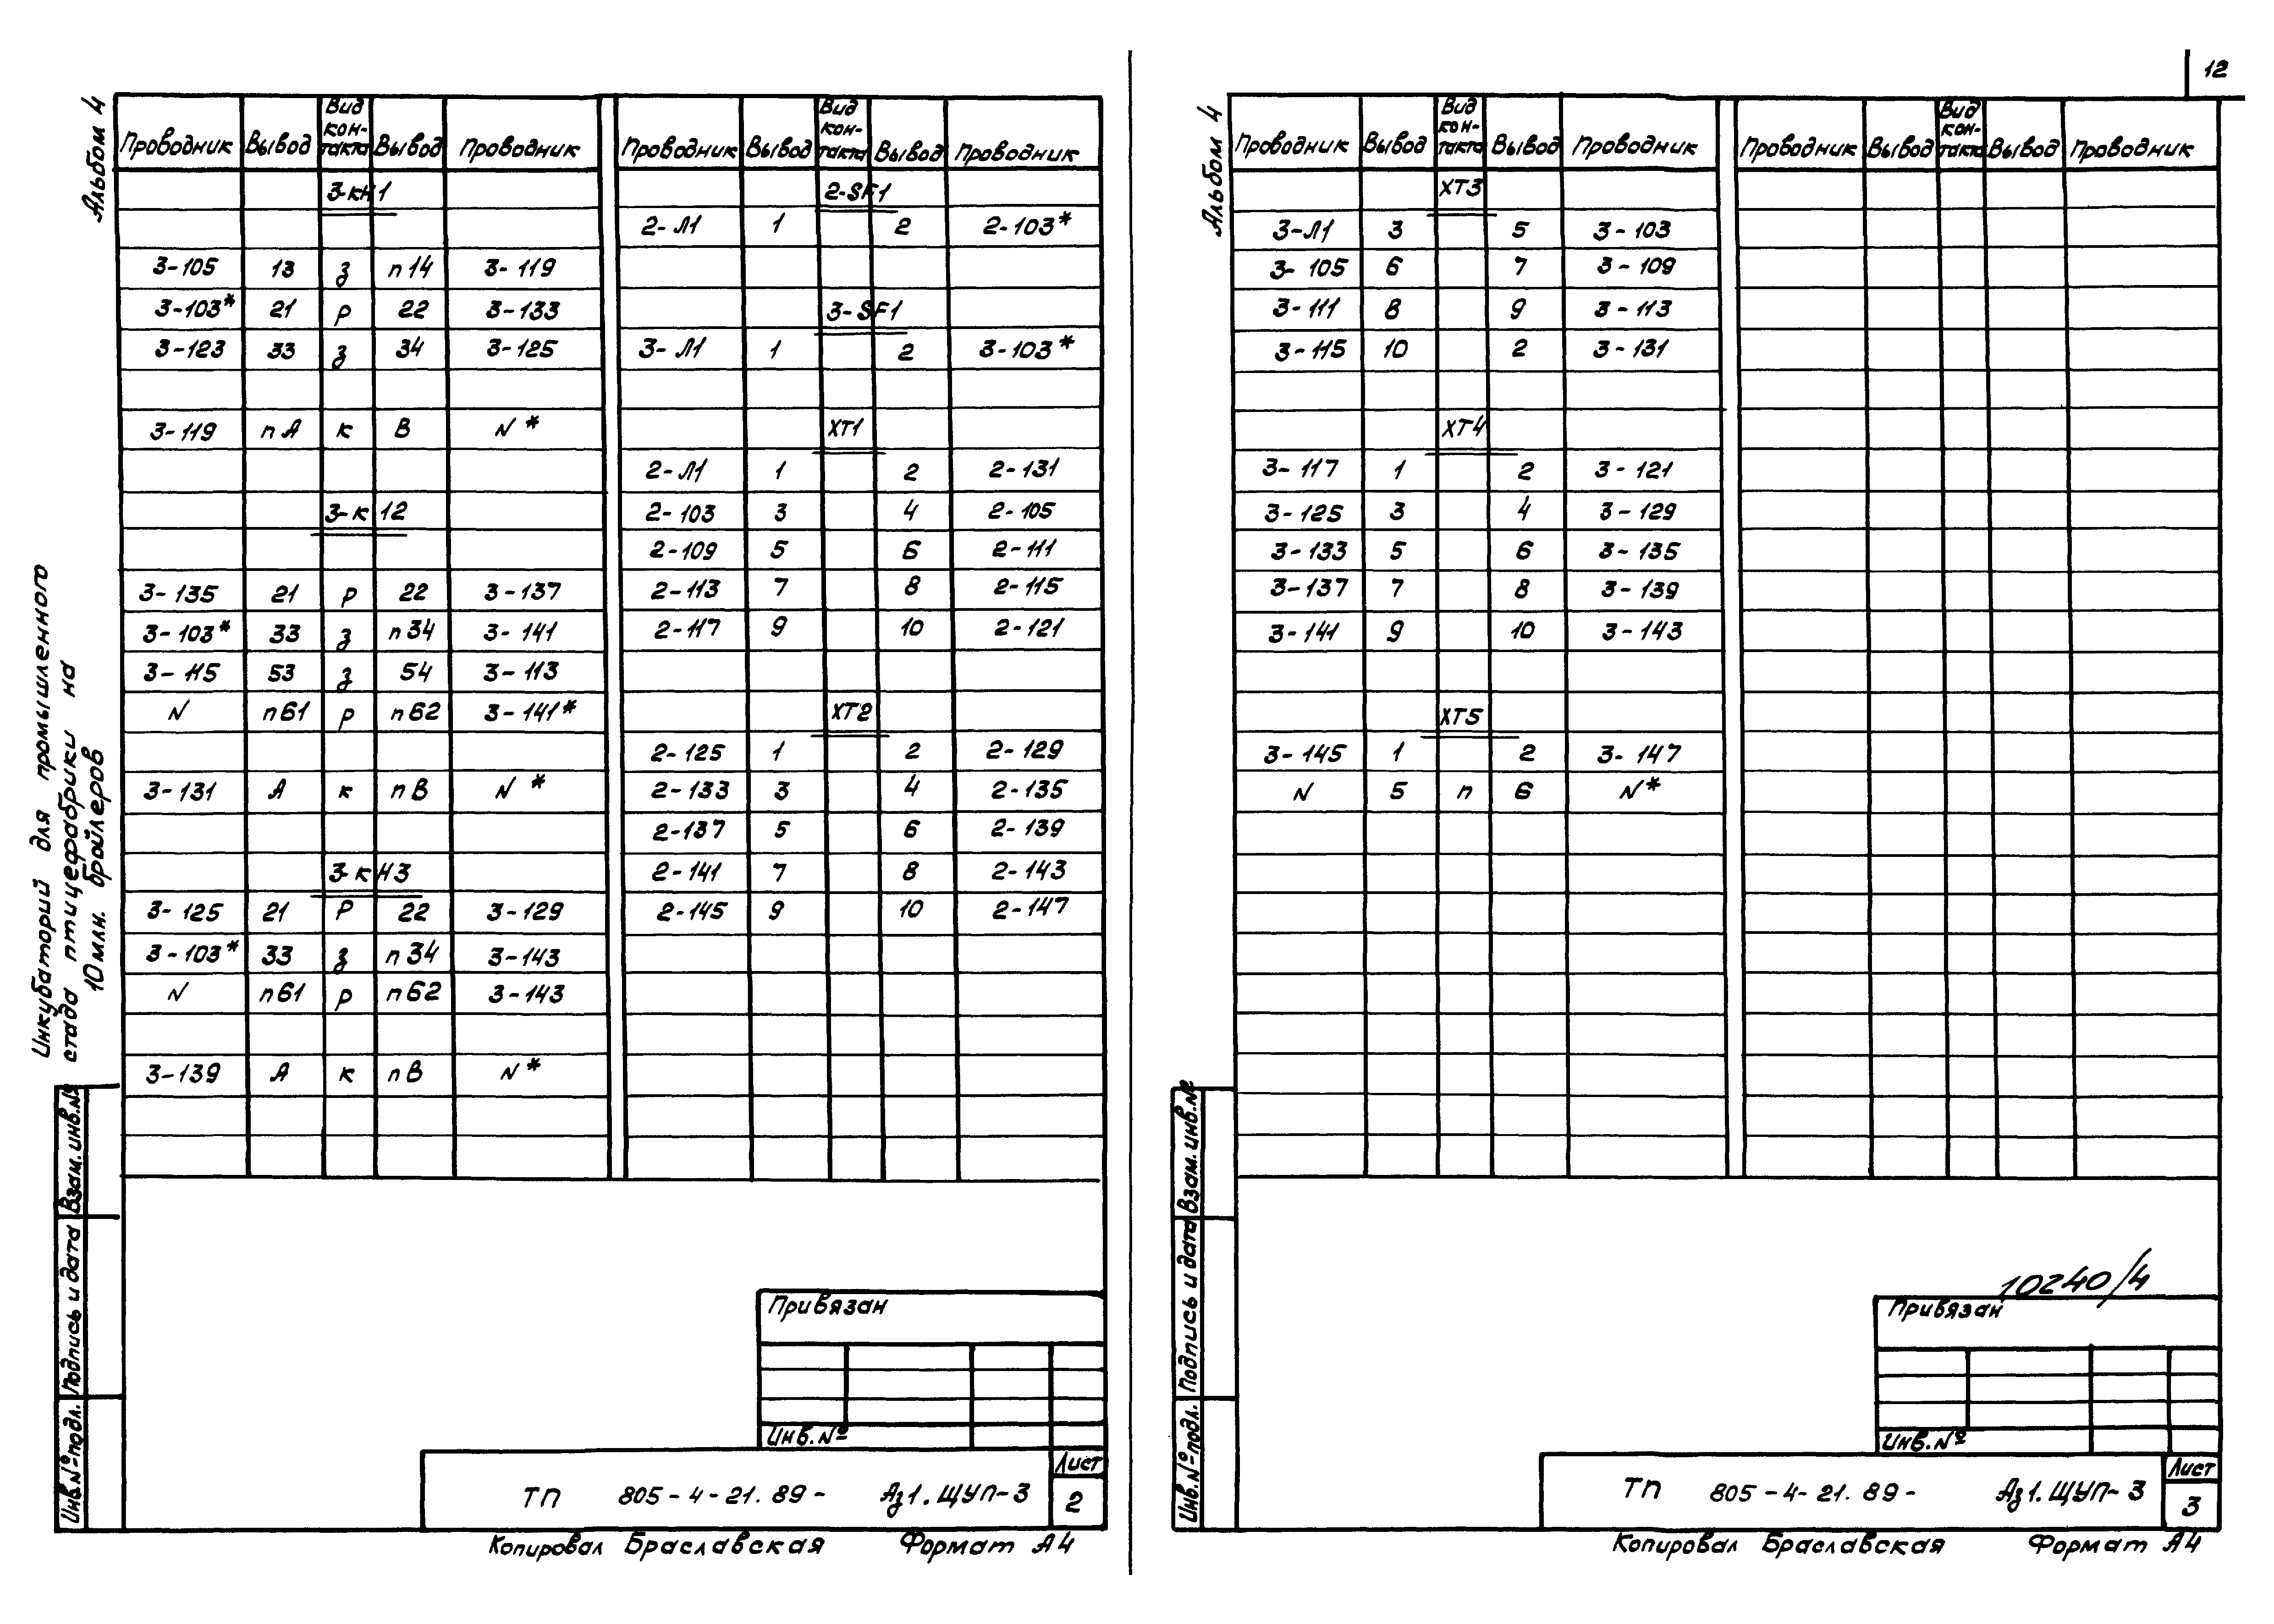 12
Альбом 4
Инкубаторий для промышленного
стада птицефабрики на
10 млн. бройлеров
Проводник Вывод Вид кон-такта Вывод Проводник
3-КН1
3-105 13 з п14 3-119
3-103* 21 р 22 3-133
3-123 33 з 34 3-125
3-119 пА к В N*
3-К12
3-135 21 р 22 3-137
3-103* 33 з п34 3-141
3-115 53 з 54 3-113
N п61 р п62 3-141*
3-131 А к пВ N*
3-КН3
3-125 21 р 22 3-129
3-103* 33 з п34 3-143
N п61 р п62 3-143
3-139 А к пВ N*
Проводник Вывод Вид кон-такта Вывод Проводник
2-SF1
2-Л1 1 2 2-103*
3-SF1
3-Л1 1 2 3-103*
ХТ1
2-Л1 1 2 2-131
2-103 3 4 2-105
2-109 5 6 2-111
2-113 7 8 2-115
2-117 9 10 2-121
ХТ2
2-125 1 2 2-129
2-133 3 4 2-135
2-137 5 6 2-139
2-141 7 8 2-143
2-145 9 10 2-147
Взам. инв. №
Подпись и дата
Инв. № подл.
Привязан
Инв. №
ТП 805-4-21.89- Аз1.ЩУП-3
Лист
2
Копировал Браславская Формат А4
Альбом 4
Проводник Вывод Вид кон-такта Вывод Проводник
ХТ3
3-Л1 3 5 3-103
3-105 6 7 3-109
3-111 8 9 3-113
3-115 10 2 3-131
ХТ4
3-117 1 2 3-121
3-125 3 4 3-129
3-133 5 6 3-135
3-137 7 8 3-139
3-141 9 10 3-143
ХТ5
3-145 1 2 3-147
N 5 п 6 N*
Проводник Вывод Вид кон-такта Вывод Проводник
Взам. инв. №
Подпись и дата
Инв. № подл.
10240/4
Привязан
Инв. №
ТП 805-4-21.89- Аз1.ЩУП-3
Лист
3
Копировал Браславская Формат А4